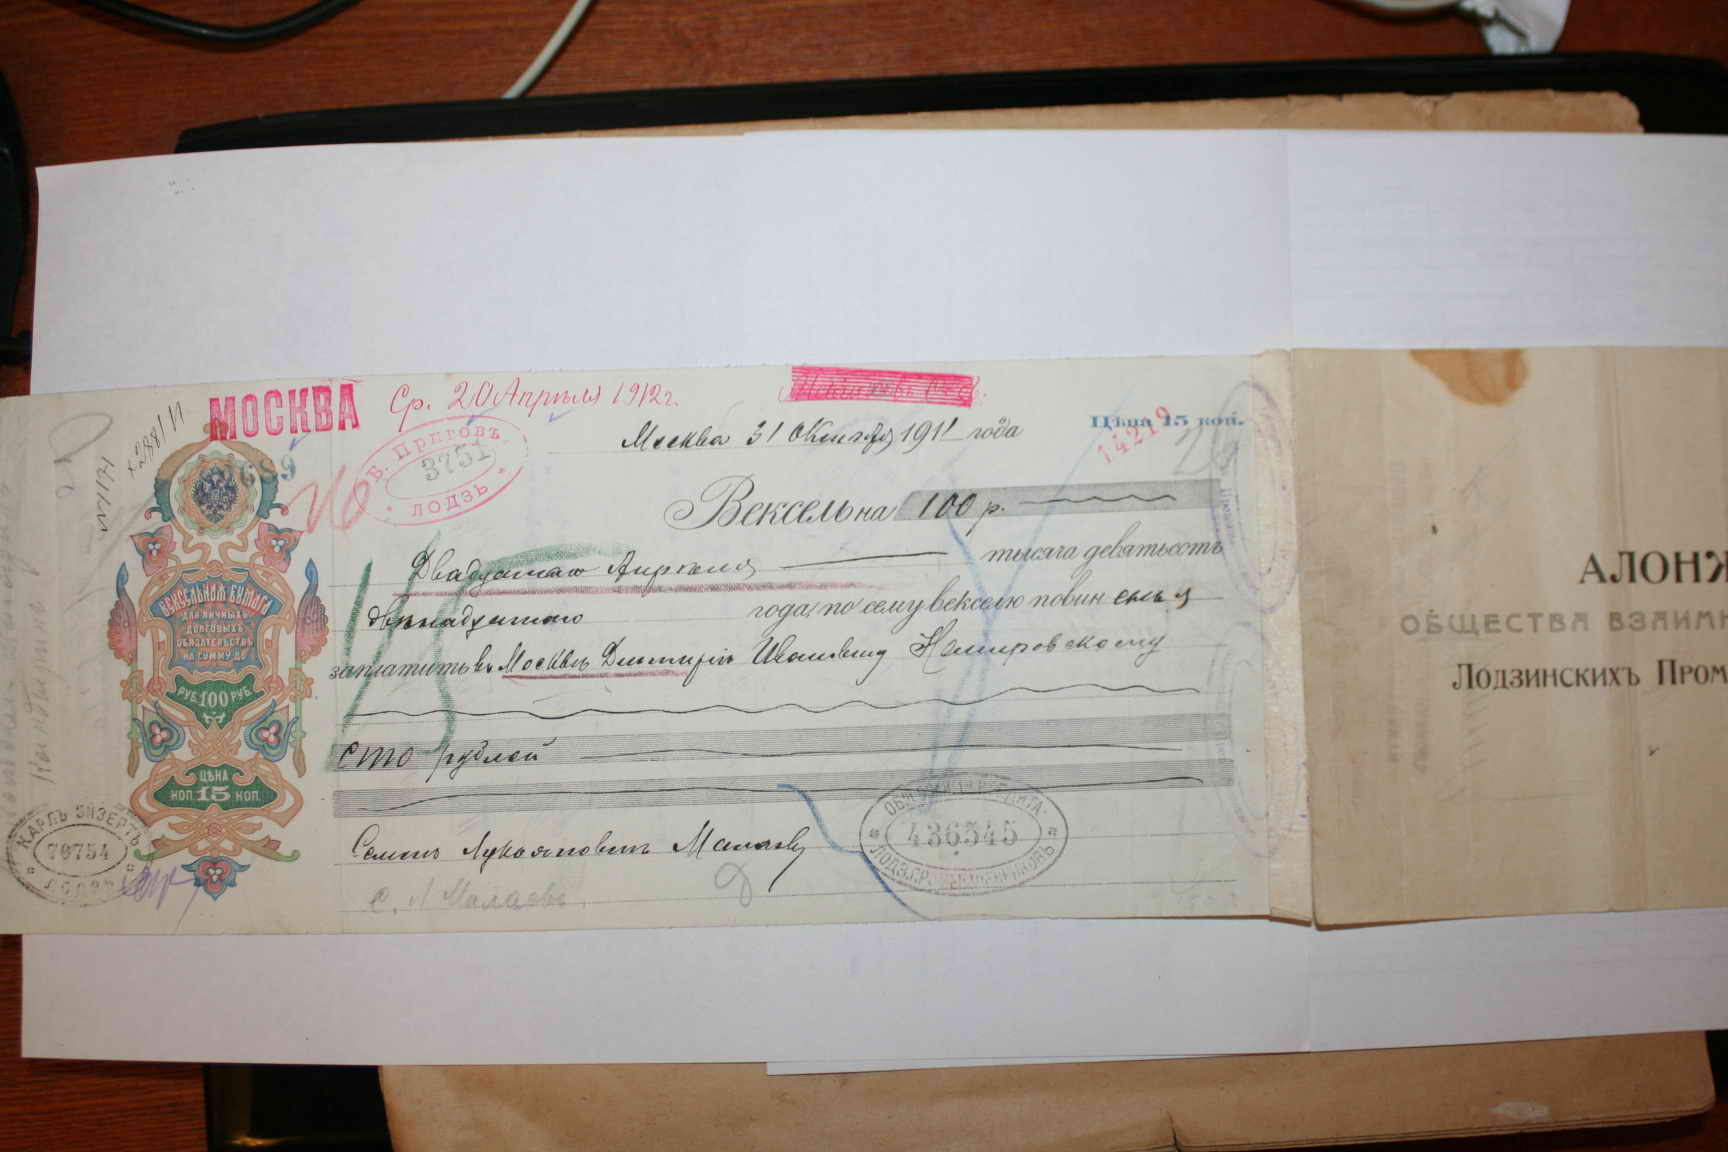 МОСКВА
Ср. 20 Апреля 1912 г.
Москва 31 Октября 1911 года
Цѣна 15 коп.
14219
689
Б. ПРИГОВЪ
3751
ЛОДЗЬ
Вексель на 100 р.
Двадцатаго Апреля тысяча девятьсотъ
двѣнадцатаго года, по сему векселю повин
заплатить въ Москвѣ Дмитрію Ивановичу Немировскому
сто рублей
Семенъ Лукьяновичъ Малаевъ
С. Л. Малаевъ.
ВЕКСЕЛЬНАЯ БУМАГА
ДЛЯ ЛИЧНЫХЪ
ДОЛГОВЫХЪ
ОБЯЗАТЕЛЬСТВЪ
НА СУММУ ДО
РУБ. 100 РУБ.
ЦѢНА
КОП. 15 КОП.
КАРЛЪ ЭЙЗЕРТЪ
70754
ЛОДЗЬ
КРЕДИТА
436545
ЛОДЗ. ПРОМЫШЛЕННИКОВЪ
АЛОНЖ
ОБЩЕСТВА ВЗАИМН
ЛОДЗИНСКИХЪ ПРОМ